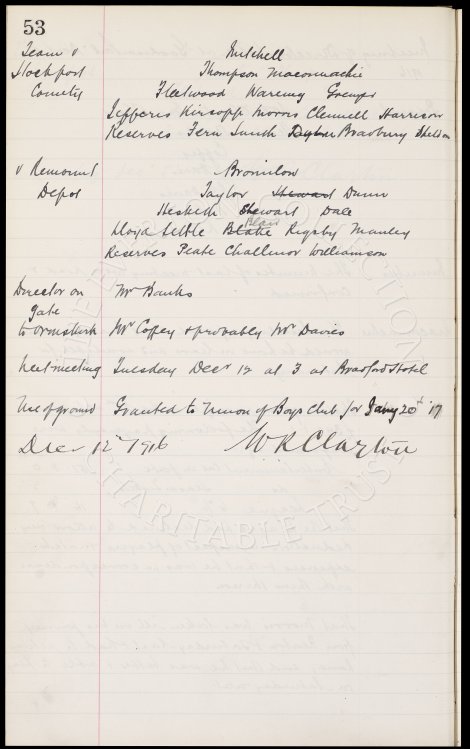 53
Team v Mitchell
Stockport Thompson Macconnachie
County Fleetwood Wareing Grenyer
Jefferis Kirsopp Morris Clennell Harrison
Reserves Fern Lunch Taylor Bradbury Shelton
v Remount Bromilow
Depot Taylor Stewart Dunn
Hesketh Stewart Dale
Blair
Lloyd Settle Blake Rigsby Manley
Reserves Peate Challinor Williamson
Director on Mr Banks
gate
to Ormskirk Mr Coffey & probably Mr Davies
Next meeting Tuesday Decr 12 at 3 at Bradford Hotel
Use of ground Granted to Union of Boys Club for Jany 20th '17
Dec 12th 1916 W R Clayton
EVERTON COLLECTION
CHARITABLE TRUST